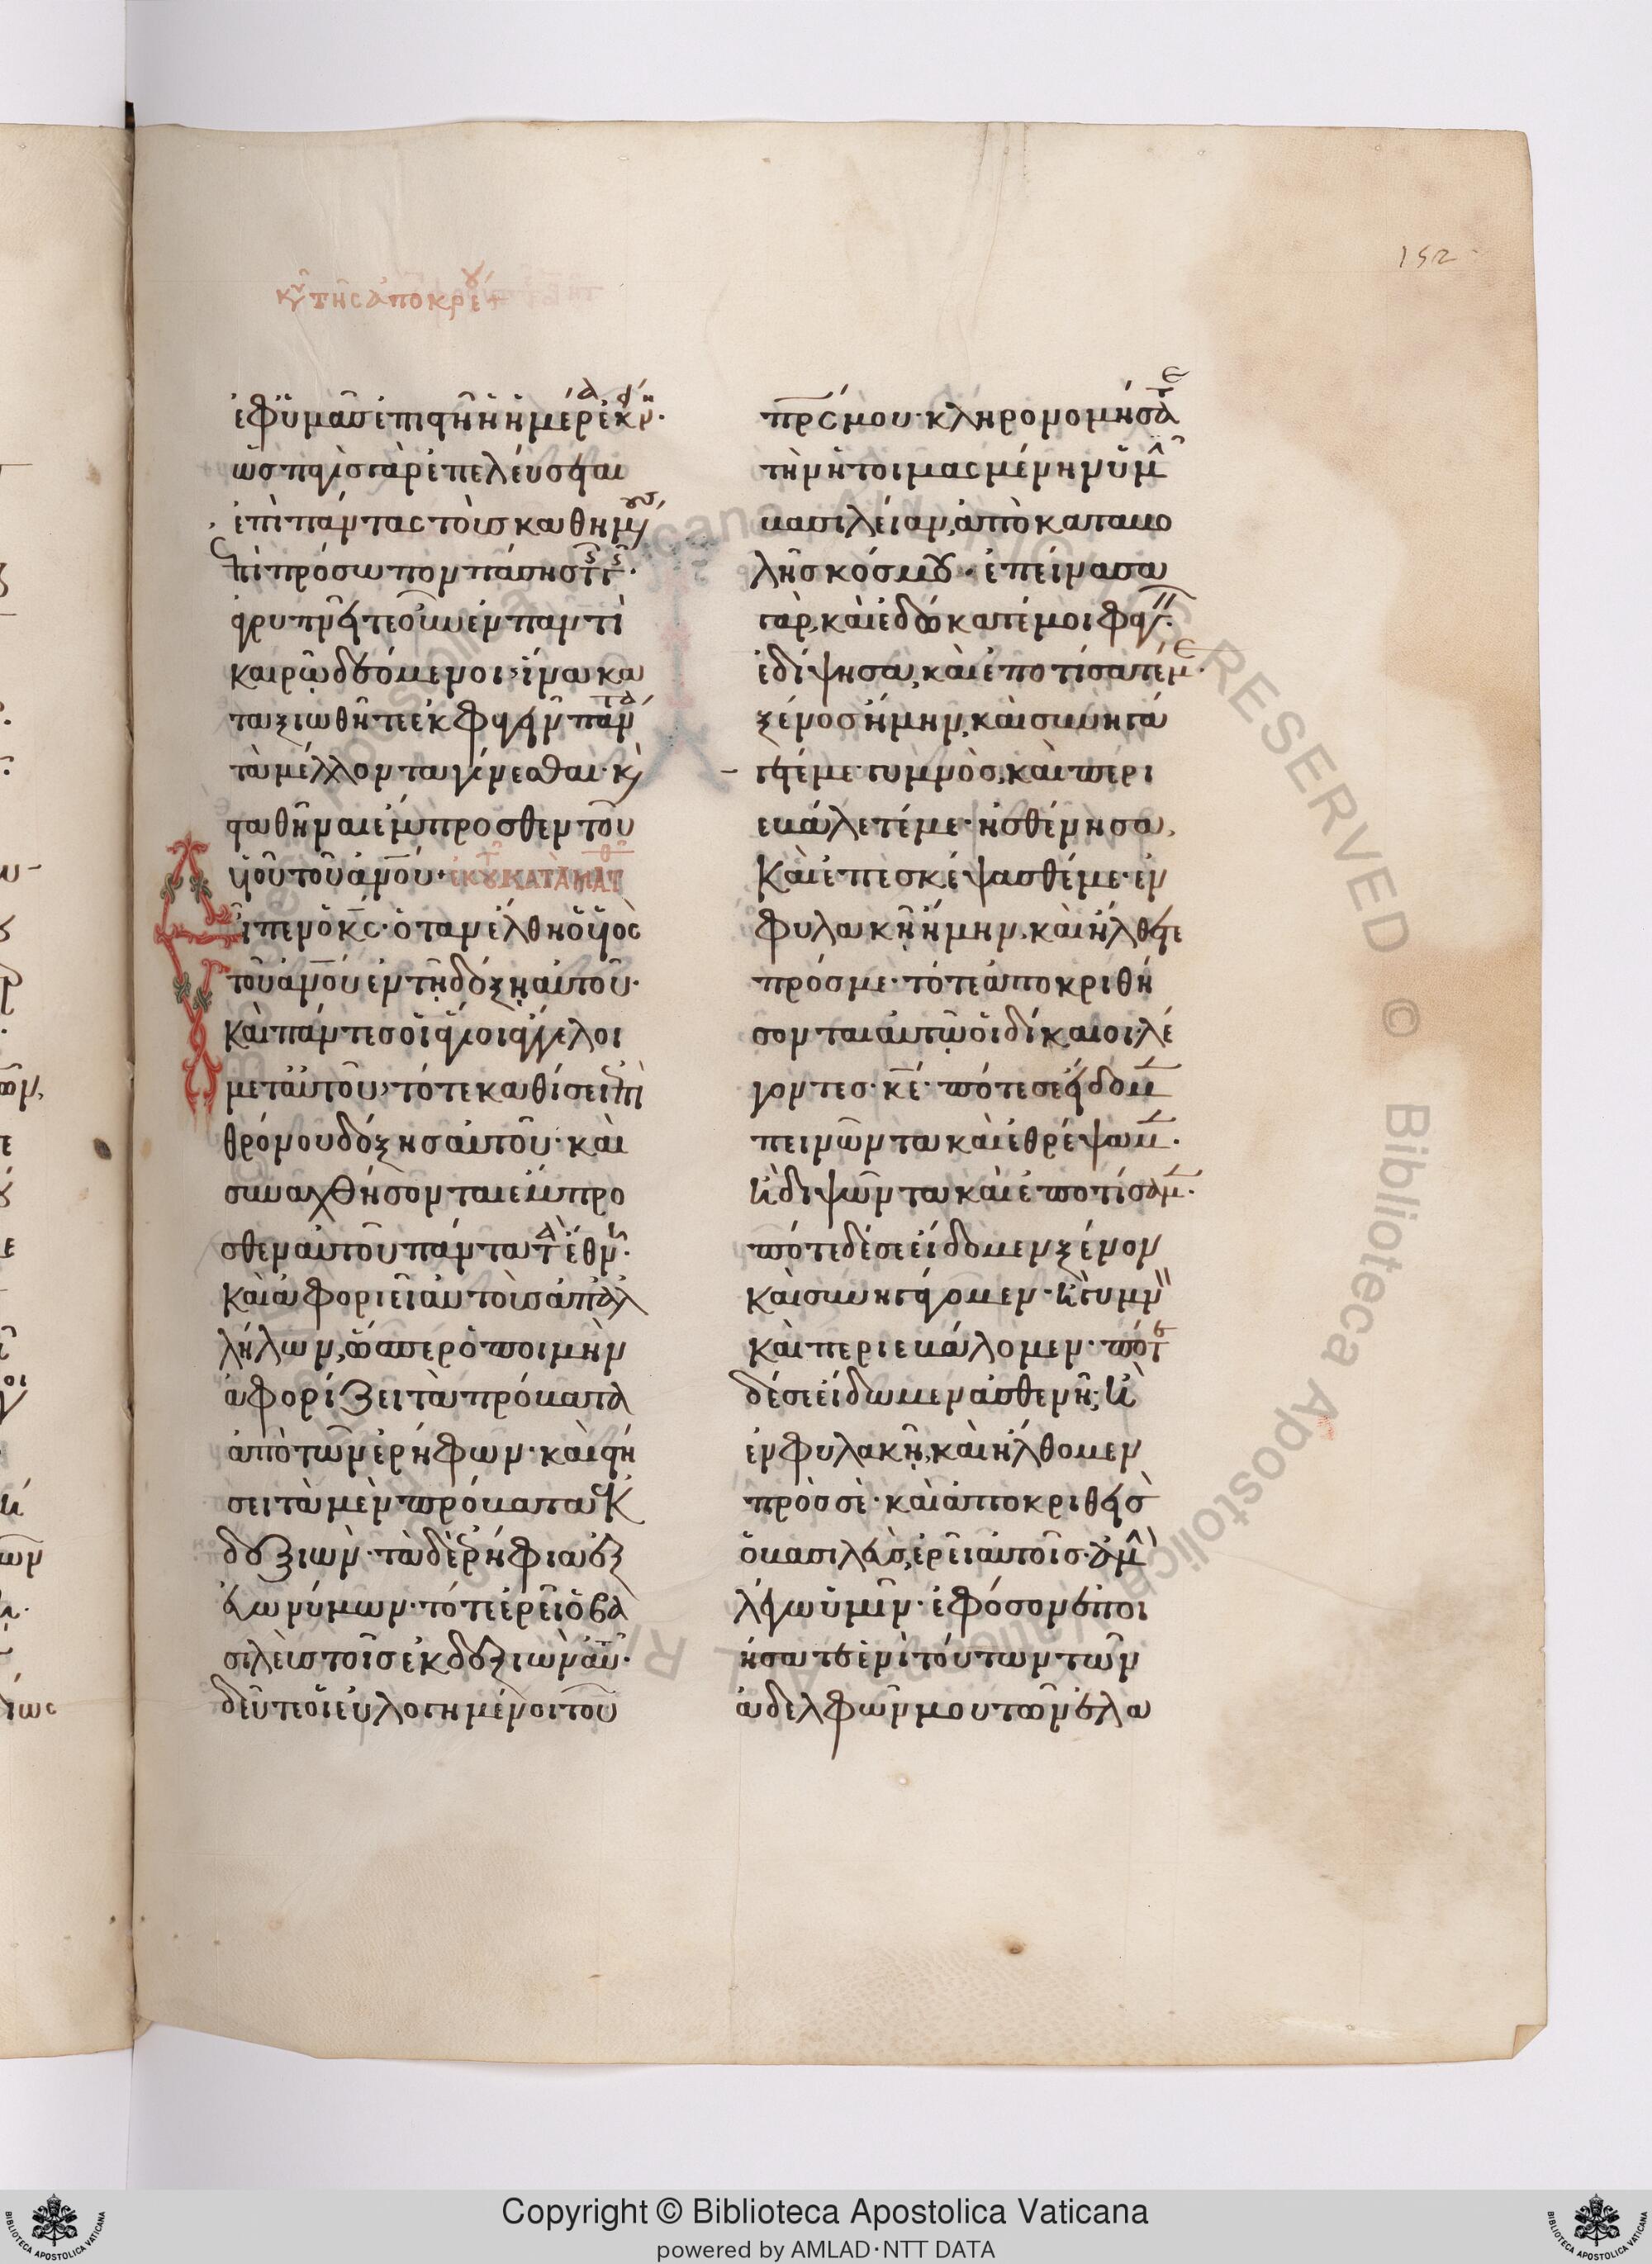 152
κυ της αποκρέου
ἐφ ὑμᾶς ἐπιστῆ ἡ ἡμέρα ἐκείνη·
ὡς παγὶς γὰρ ἐπελεύσεται
ἐπὶ πάντας τοὺς καθημένους
ἐπὶ πρόσωπον πάσης τῆς γῆς·
ἀγρυπνεῖτε οὖν ἐν παντὶ
καιρῷ δεόμενοι, ἵνα κα
ταξιωθῆτε ἐκφυγεῖν πάντα
τὰ μέλλοντα γίνεσθαι· κ(αὶ)
σταθῆναι ἔμπροσθεν τοῦ
υἱοῦ τοῦ ἀνου· ἐκ τοῦ ΚΑΤΑ ΜΑΤΘ
Εἶπεν ὁ κς· ὅταν ἔλθη ὁ υἱὸς
τοῦ ἀνου ἐν τῇ δόξῃ αὐτοῦ·
καὶ πάντες οἱ ἅγιοι ἄγγελοι
μετ αὐτοῦ, τότε καθίσει ἐπὶ
θρόνου δόξης αὐτοῦ· καὶ
συναχθήσονται ἔμπρο
σθεν αὐτοῦ πάντα τὰ ἔθνη·
καὶ ἀφοριεῖ αὐτοὺς ἀπ ἀλ
λήλων, ὥσπερ ὁ ποιμὴν
ἀφορίζει τὰ πρόβατα
ἀπὸ τῶν ἐρήφων· καὶ στή
σει τὰ μὲν πρόβατα ἐκ
δεξιῶν· τὰ δὲ ἐρήφια ἐξ
εὐωνύμων· τότε ἐρεῖ ὁ βα
σιλεὺς τοῖς ἐκ δεξιῶν αὐτοῦ·
δεῦτε οἱ εὐλογημένοι τοῦ
πρς μου· κληρονομήσατε
τὴν ἡτοιμασμένην ὑμῖν
βασιλείαν, ἀπὸ καταβο
λῆς κόσμου· ἐπείνασα
γὰρ, καὶ ἐδώκατέ μοι φαγεῖν·
ἐδίψησα, καὶ ἐποτίσατέ με·
ξένος ἤμην, καὶ συνηγά
γετέ με· γυμνὸς, καὶ περι
εβάλετέ με· ἠσθένησα,
καὶ ἐπεσκέψασθέ με· ἐν
φυλακῇ ἤμην, καὶ ἤλθετε
πρός με· τότε ἀποκριθή
σονται αὐτῷ οἱ δίκαιοι, λέ
γοντες· κε· πότε σε εἴδομεν
πεινῶντα καὶ ἐθρέψαμεν·
ἢ διψῶντα καὶ ἐποτίσαμεν·
πότε δέ σε εἴδομεν ξένον
καὶ συνηγάγομεν· ἢ γυμνὸν
καὶ περιεβάλομεν· πότε
δέ σε εἴδωμεν ἀσθενῆ, ἢ
ἐν φυλακῇ, καὶ ἤλθομεν
πρὸς σέ· καὶ ἀποκριθεὶς
ὁ βασιλεὺς, ἐρεῖ αὐτοῖς· ἀμὴν
λέγω ὑμῖν· ἐφ ὅσον ἐποι
ήσατε ἑνὶ τούτων τῶν
ἀδελφῶν μου τῶν ἐλα
Copyright © Biblioteca Apostolica Vaticana
powered by AMLAD·NTT DATA